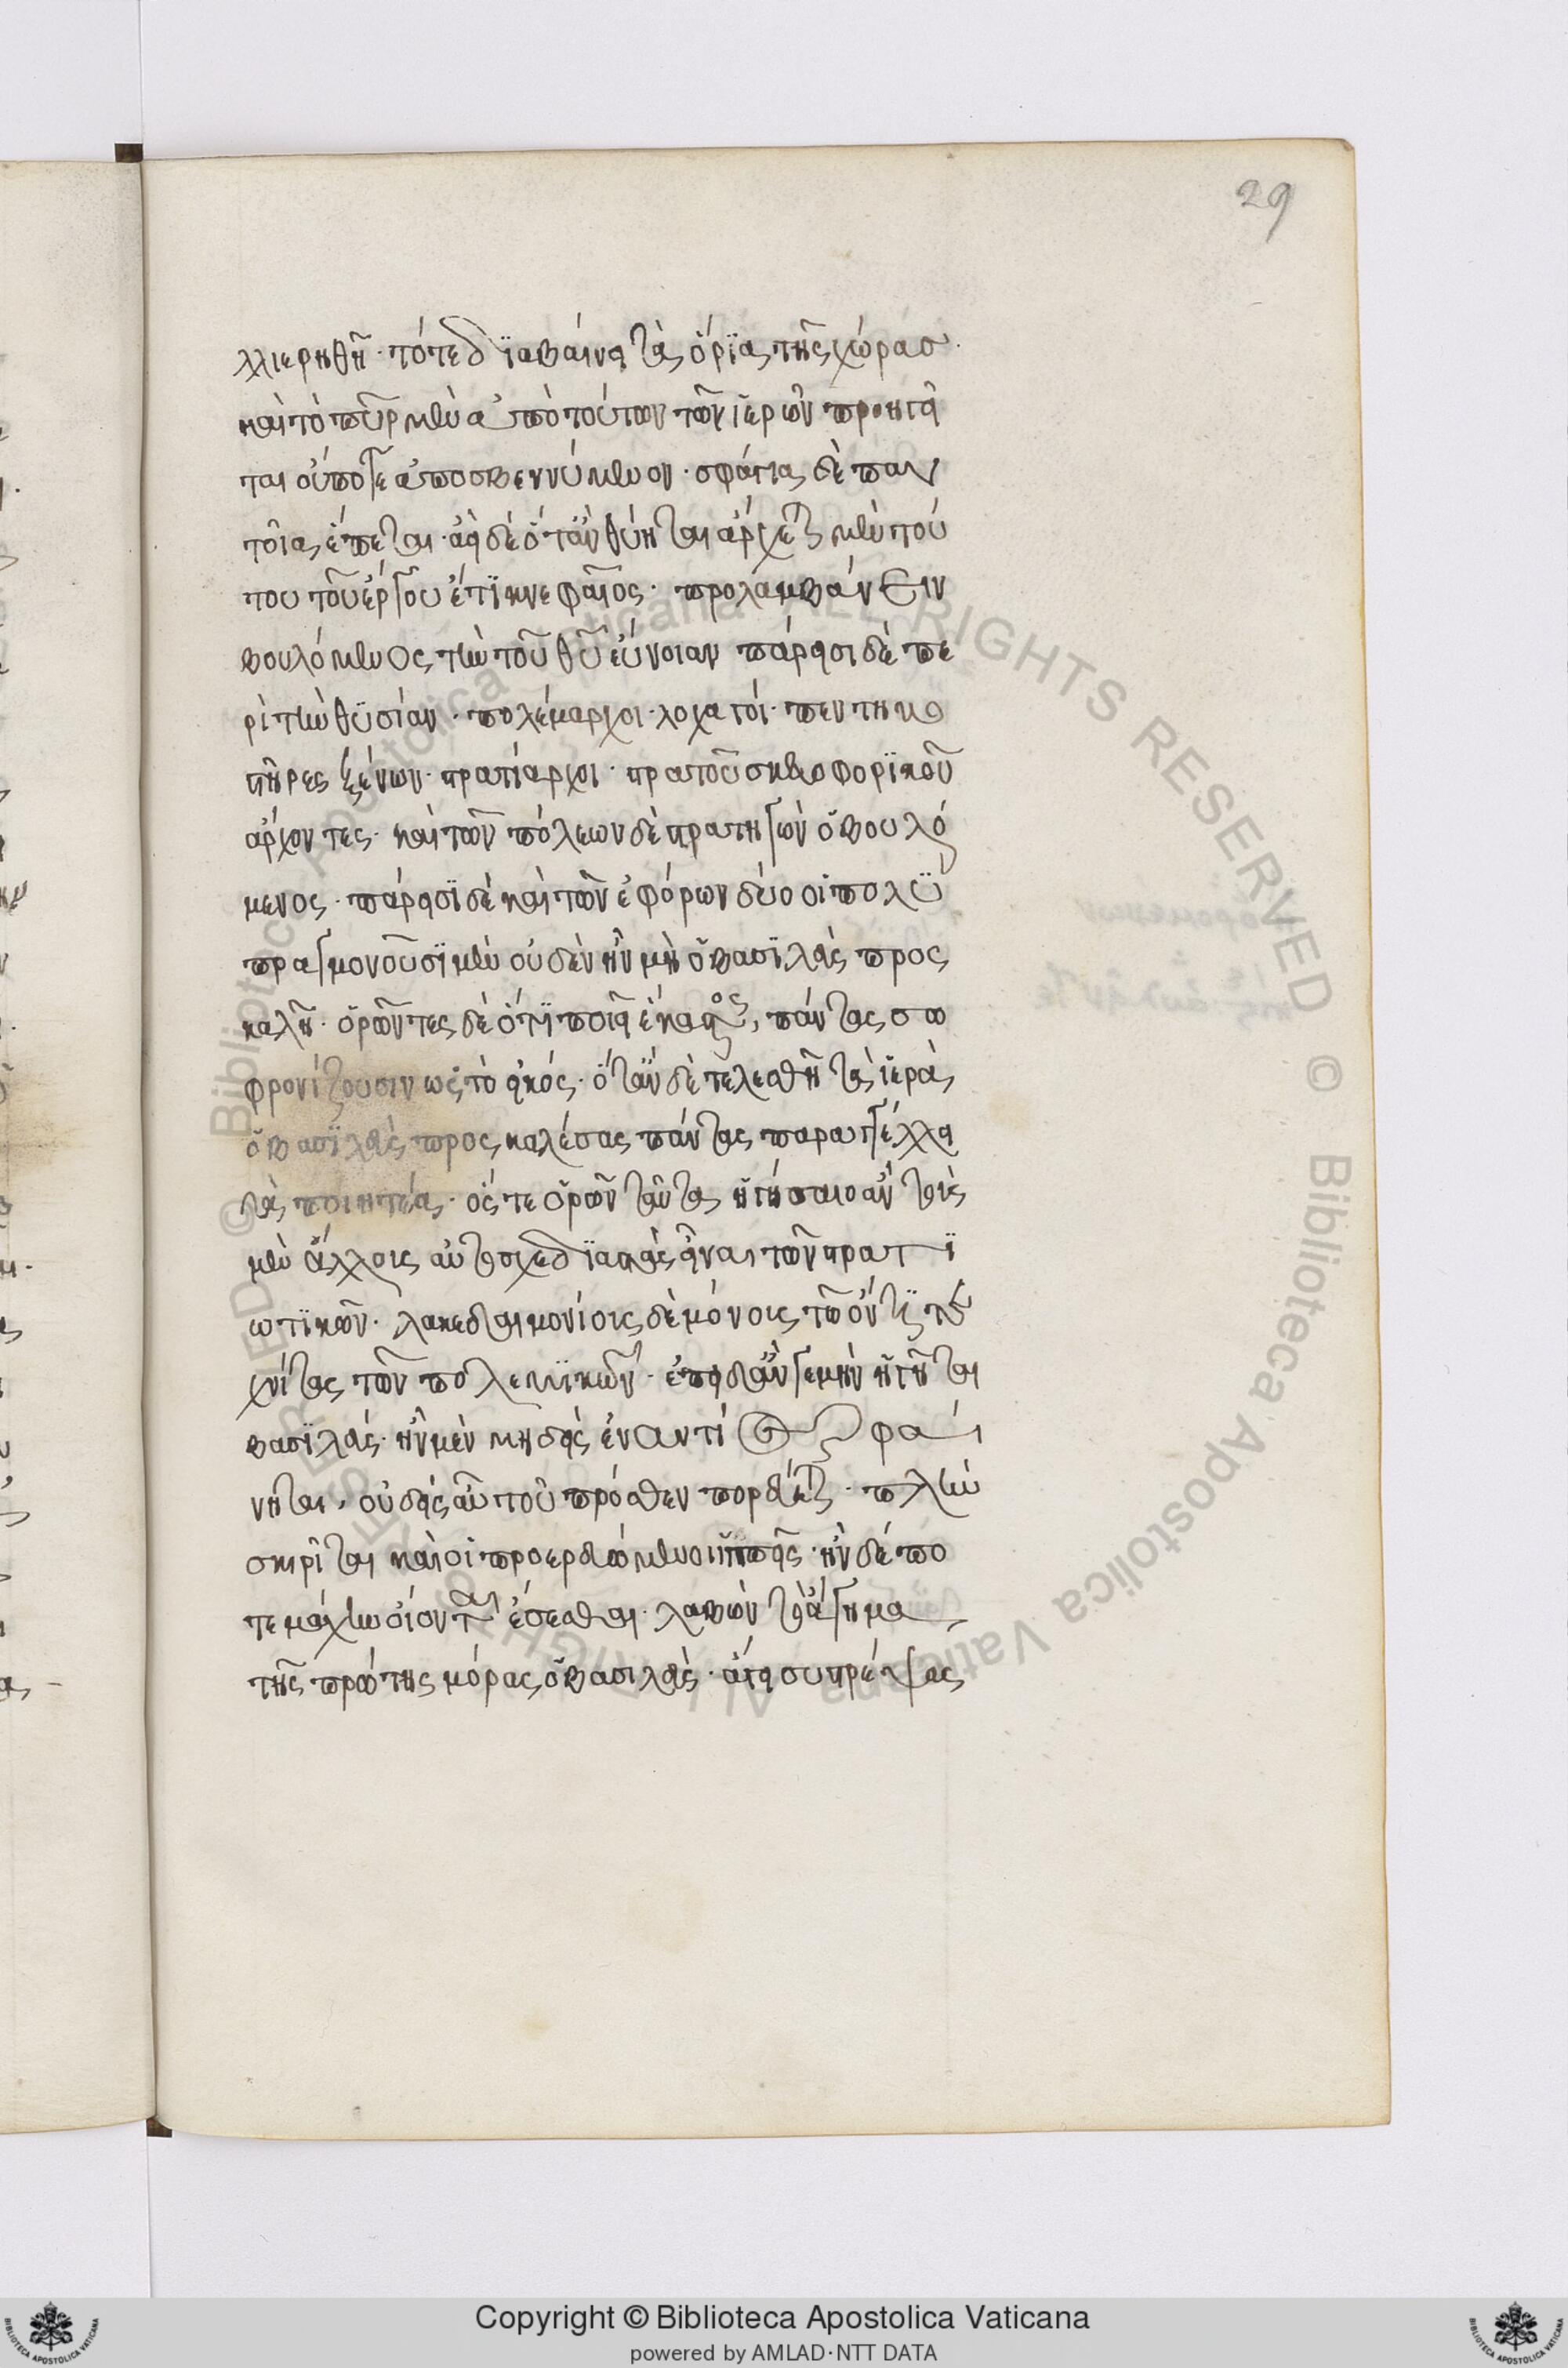 29
λλιερηθῆ· τότε διαβαίνει τὰ ὅρια τῆς χώρασ·
καὶ τὸ πῦρ μὲν ἀπὸ τούτων τῶν ἱερῶν προηγεῖ
ται οὔποτε ἀποσβεννύμενον· σφάγια δὲ παν
τοῖα ἕπεται· ἀεὶ δὲ ὅταν θύηται ἄρχεται μὲν τού
του τοῦ ἔργου ἔτι κνεφαῖος· προλαμβάνειν
βουλόμενος τὴν τοῦ θεοῦ εὔνοιαν πάρεισι δὲ πε
ρὶ τὴν θυσίαν· πολέμαρχοι· λοχαγοί· πεντηκο
στῆρες ξένων· στρατίαρχοι· στρατοῦ σκευοφορικοῦ
ἄρχοντες· καὶ τῶν πόλεων δὲ στρατηγῶν ὁ βουλό
μενος· πάρεισι δὲ καὶ τῶν ἐφόρων δύο οἳ πολυ
πραγμονοῦσι μὲν οὐδὲν ἢν μὴ ὁ βασιλεὺς προς
καλῆ· ὁρῶντες δὲ ὅτι ποιεῖ ἕκαστος, πάντας σω
φρονίζουσιν ὡς τὸ εἰκός· ὅταν δὲ τελεσθῆ τὰ ἱερὰ
ὁ βασιλεὺς προς καλέσας πάντας παραγγέλλει
τὰ ποιητέα· ὅς τε ὁρῶν ταῦτα ἡγήσαιο ἂν τοὺς
μὲν ἄλλοις αὐτοσχεδιαστὰς εἶναι τῶν στρατι
ωτικῶν· λακεδαιμονίοις δὲ μόνοις τῶ ὄντι τε
χνίτας τῶν πολεμικῶν· ἐπειδάν γε μὴν ἡγῆται
βασιλεύς· ἢν μὲν μηδεὶς ἐναντίος φαί
νηται, οὐδεὶς αὐτοῦ πρόσθεν πορεύεται· πλὴν
σκιρῖται καὶ οἱ προερευνώμενοι ἱππεῖς· ἢν δέ πο
τε μάχην οἴονται ἔσεσθαι· λαβὼν τὸ ἄγημα
τῆς πρώτης μόρας ὁ βασιλεὺς· ἄγει στρέψας
Copyright © Biblioteca Apostolica Vaticana
powered by AMLAD·NTT DATA